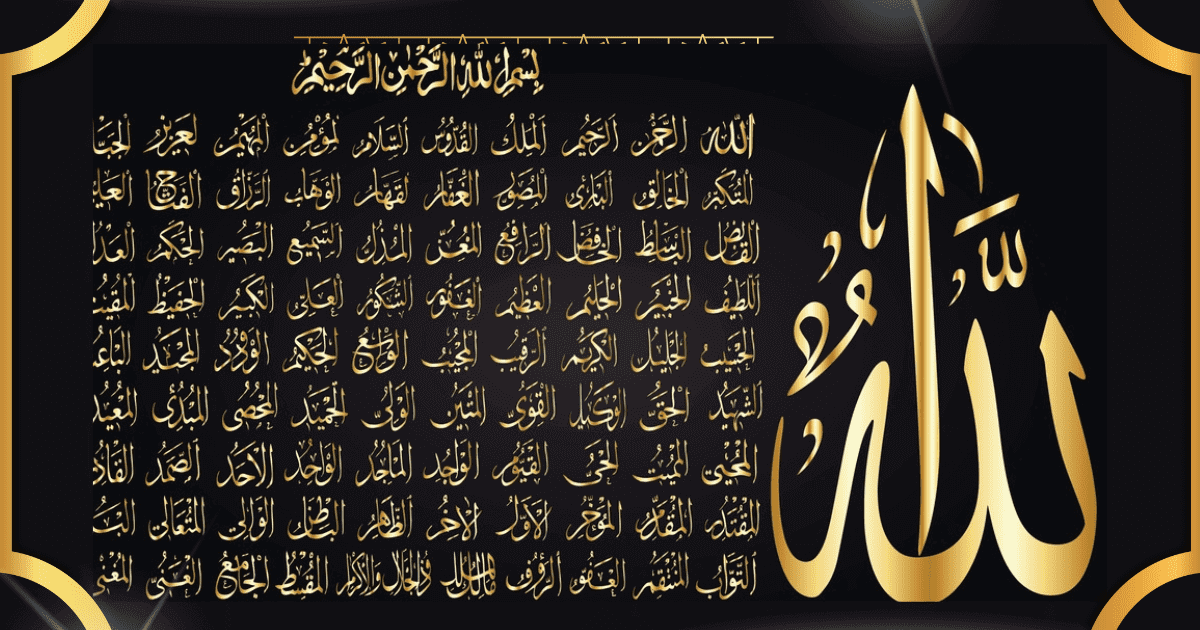 بِسْمِ اللهِ الرَّحْمٰنِ الرَّحِيْمِ
الله الرحمن الرحيم الملك القدوس السلام المؤمن المهيمن العزيز
المتكبر الخالق البارئ المصور الغفار القهار الوهاب الرزاق الفتاح
القابض الباسط الخافض الرافع المعز المذل السميع البصير الحكم العدل
اللطيف الخبير الحليم العظيم الغفور الشكور العلي الكبير الحفيظ المقيت
الحسيب الجليل الكريم الرقيب المجيب الواسع الحكيم الودود المجيد
الشهيد الحق الوكيل القوي المتين الولي الحميد المحصي المبدئ المعيد
المحيي المميت الحي القيوم الواجد الماجد الواحد الأحد الصمد
المقتدر المقدم المؤخر الأول الآخر الظاهر الباطن الوالي المتعالي
التواب المنتقم العفو الرؤف مالك الملك ذو الجلال والإكرام المقسط الجامع الغني المغني
الله